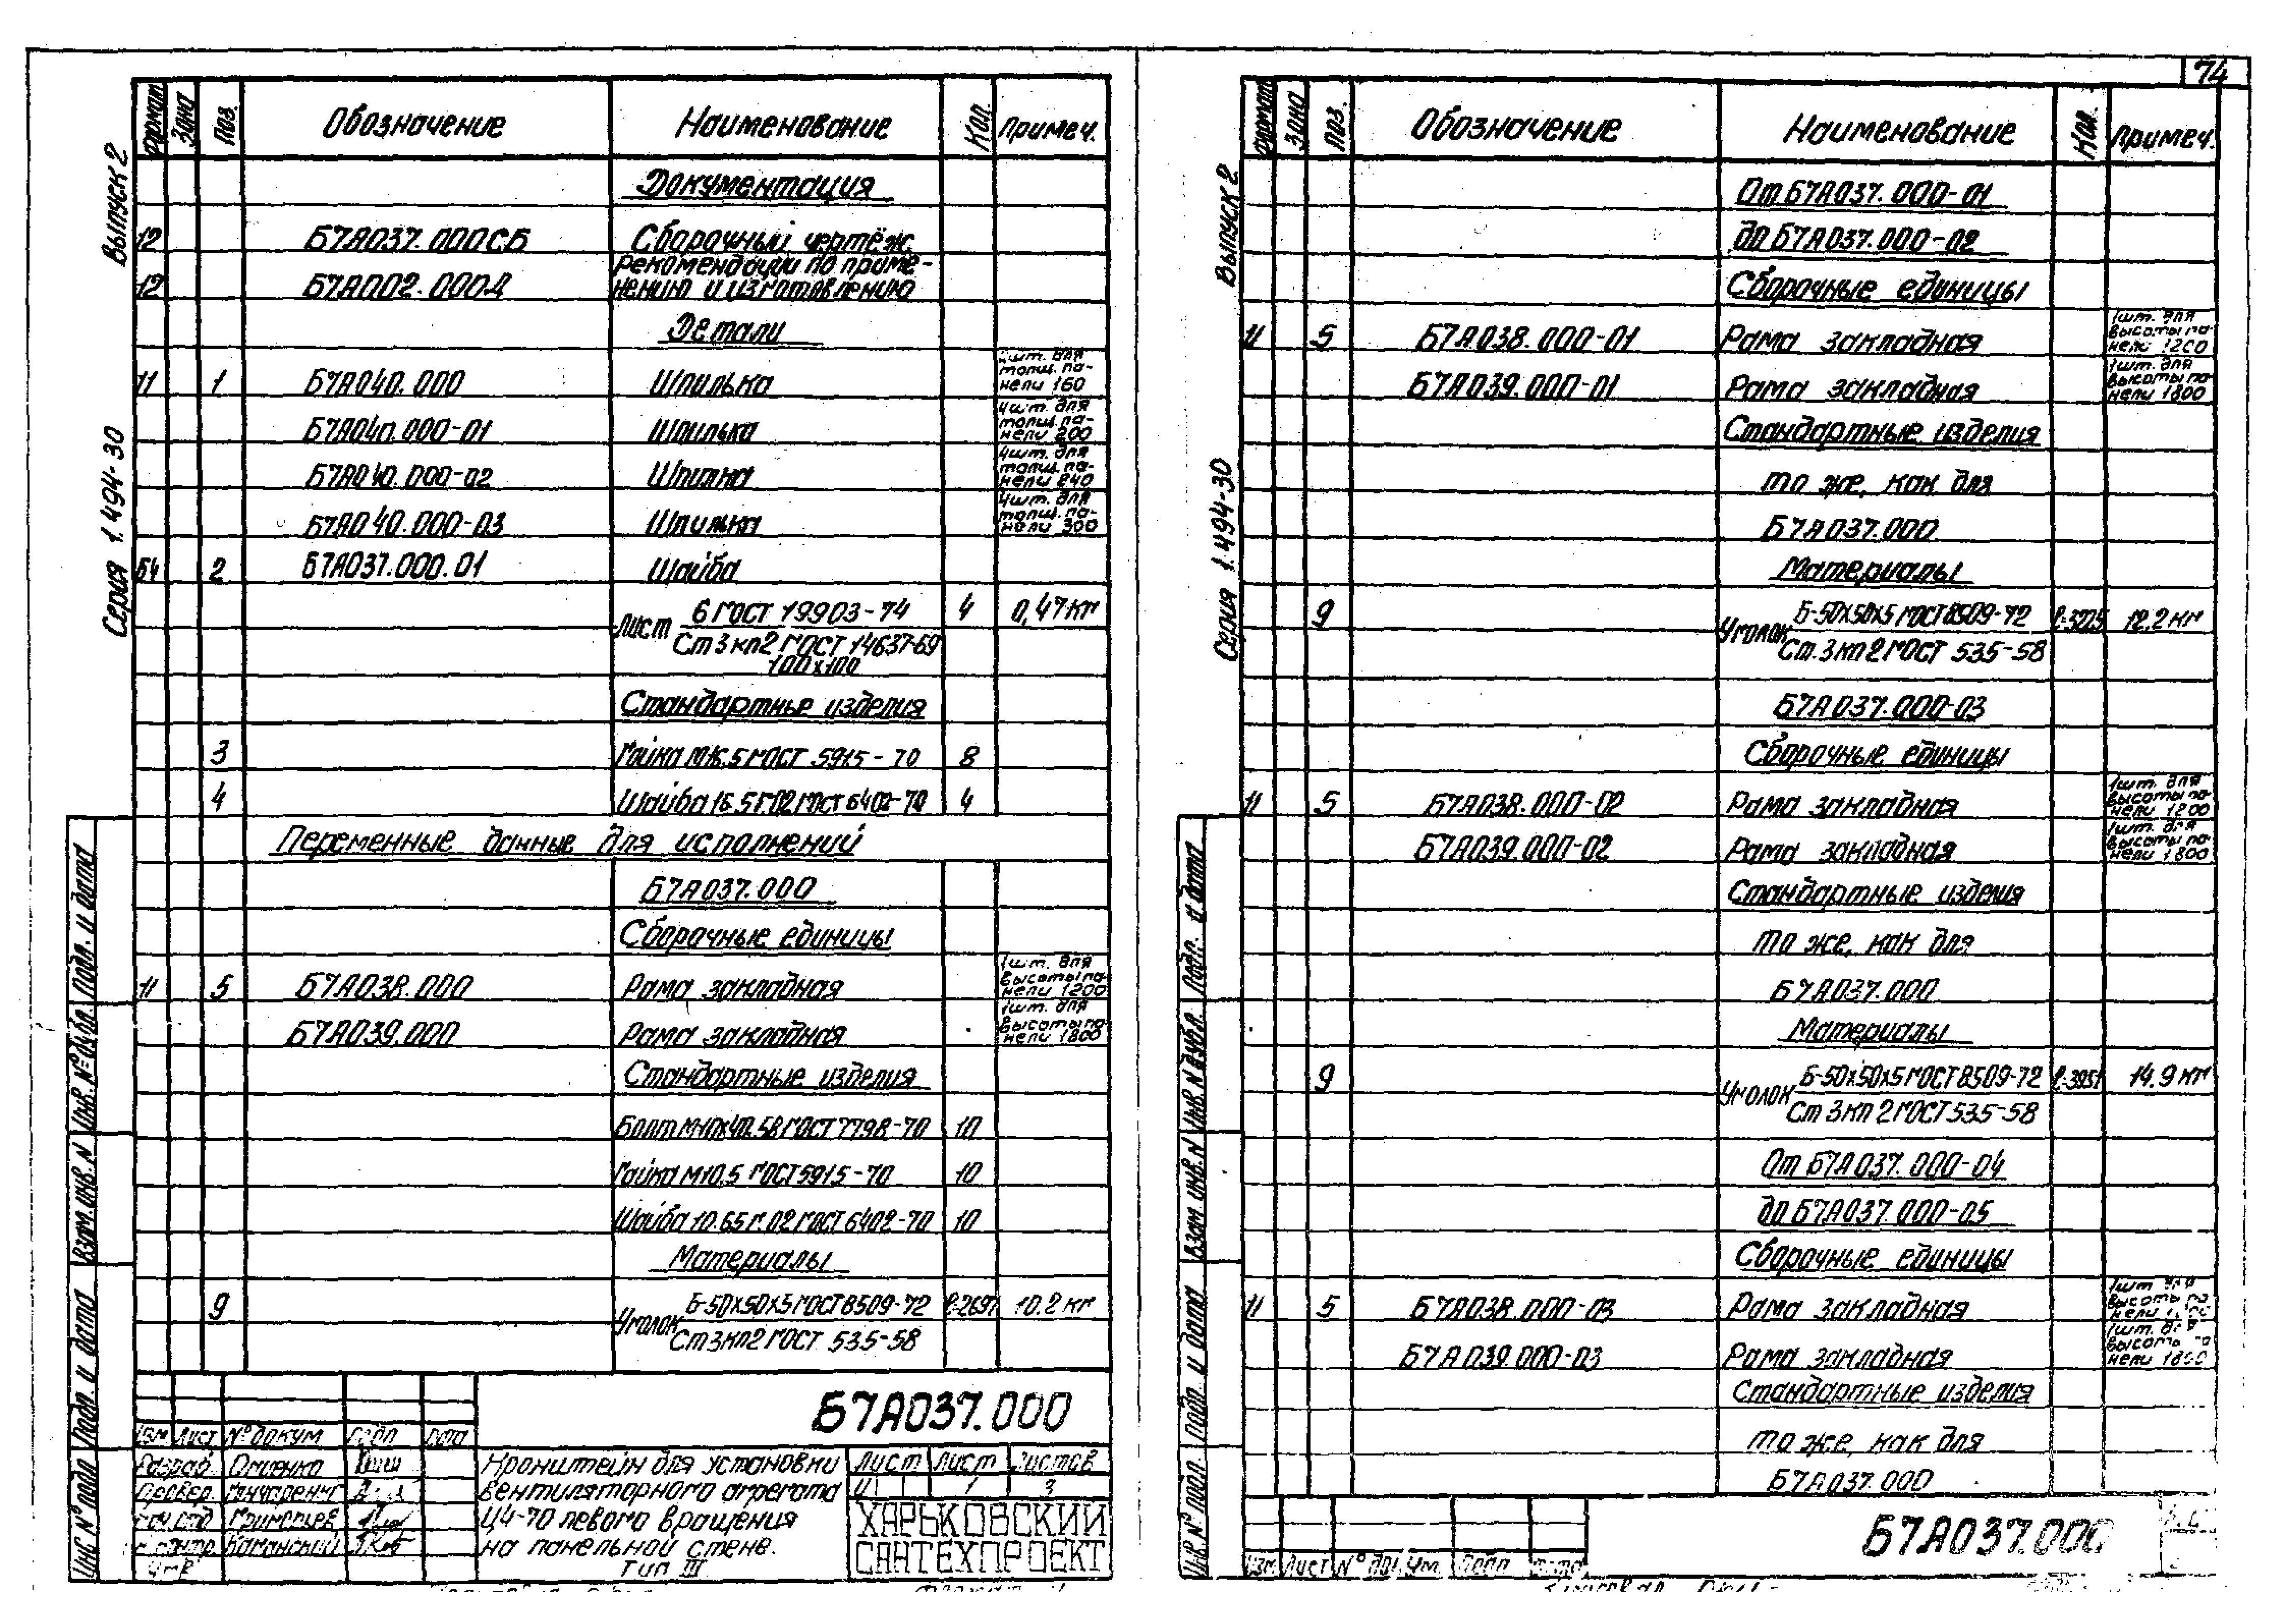 74
Серия 1.494-30 Выпуск 2
Формат Зона Поз. Обозначение Наименование Кол. Примеч.
Документация
12 Б7А037.000СБ Сборочный чертёж
12 Б7А002.000Д Рекомендации по приме-
нению и изготовлению
Детали
11 1 Б7А040.000 Шпилька 4шт. для
толщ. па-
нели 160
Б7А040.000-01 Шпилька 4шт. для
толщ. па-
нели 200
Б7А040.000-02 Шпилька 4шт. для
толщ. па-
нели 240
Б7А040.000-03 Шпилька 4шт. для
толщ. па-
нели 300
Б4 2 Б7А037.000.01 Шайба
Лист 6 ГОСТ 19903-74 4 0,47кг
Ст3кп2 ГОСТ 14637-69
100х100
Стандартные изделия
3 Гайка М16.5 ГОСТ 5915-70 8
4 Шайба 16.5Г.02 ГОСТ 6402-70 4
Переменные данные для исполнений
Б7А037.000
Сборочные единицы
11 5 Б7А038.000 Рама закладная 1шт. для
высоты па-
нели 1200
Б7А039.000 Рама закладная 1шт. для
высоты па-
нели 1800
Стандартные изделия
Болт М10х40.58 ГОСТ 7798-70 10
Гайка М10.5 ГОСТ 5915-70 10
Шайба 10.65г.02 ГОСТ 6402-70 10
Материалы
9 Уголок Б-50х50х5 ГОСТ 8509-72 ℓ-2697 10.2 кг
Ст3кп2 ГОСТ 535-58
Инв. № подл. Подп. и дата Взам. инв. № Инв. № дубл. Подп. и дата
Б7А037.000
Изм Лист № докум Подп Дата
Разраб.
Провер.
Кронштейн для установки
вентиляторного агрегата
Ц4-70 левого вращения
на панельной стене.
Тип III
Лист Лист Листов
И 1 3
ХАРЬКОВСКИЙ
САНТЕХПРОЕКТ
Серия 1.494-30 Выпуск 2
Формат Зона Поз. Обозначение Наименование Кол. Примеч.
От Б7А037.000-01
до Б7А037.000-02
Сборочные единицы
11 5 Б7А038.000-01 Рама закладная 1шт. для
высоты па-
нели 1200
Б7А039.000-01 Рама закладная 1шт. для
высоты па-
нели 1800
Стандартные изделия
то же, как для
Б7А037.000
Материалы
9 Уголок Б-50х50х5 ГОСТ 8509-72 ℓ-3225 12.2 кг
Ст.3кп2 ГОСТ 535-58
Б7А037.000-03
Сборочные единицы
11 5 Б7А038.000-02 Рама закладная 1шт. для
высоты па-
нели 1200
Б7А039.000-02 Рама закладная 1шт. для
высоты па-
нели 1800
Стандартные изделия
то же, как для
Б7А037.000
Материалы
9 Уголок Б-50х50х5 ГОСТ 8509-72 ℓ-3951 14.9 кг
Ст3кп2 ГОСТ 535-58
От Б7А037.000-04
до Б7А037.000-05
Сборочные единицы
11 5 Б7А038.000-03 Рама закладная 1шт для
высоты па
нели
Б7А039.000-03 Рама закладная 1шт. для
высоты па
нели 1800
Стандартные изделия
то же, как для
Б7А037.000
Инв. № подл. Подп. и дата Взам. инв. № Инв. № дубл. Подп. и дата
Изм Лист № докум. Подп Дата
Б7А037.000